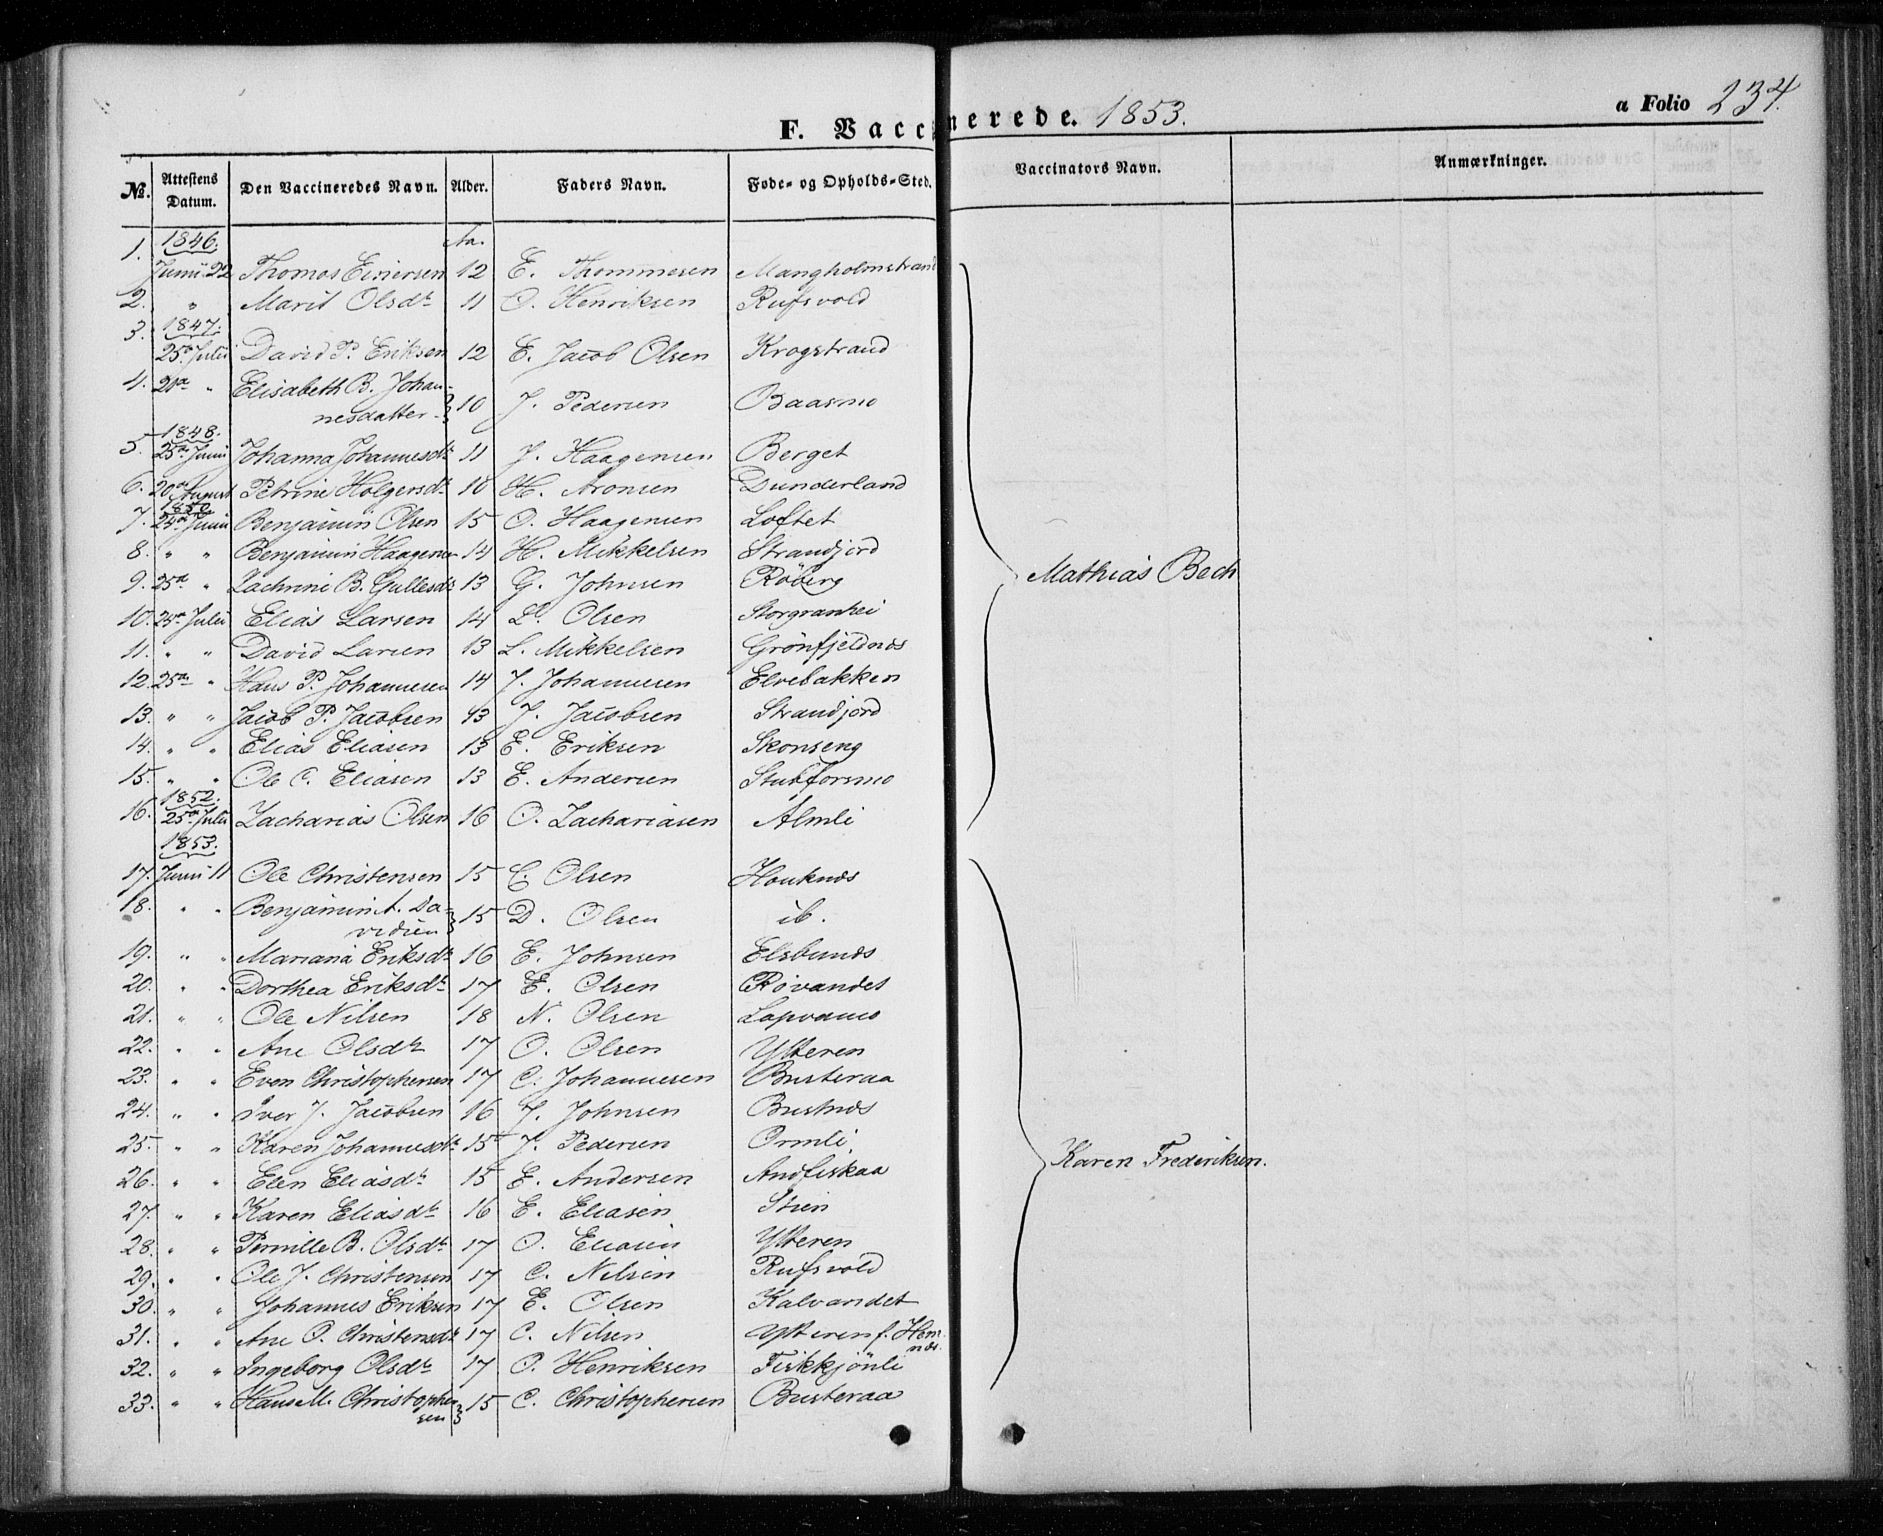 F. Vaccinerede. 1853. a Folio 234.
№. Attestens Datum. Den Vaccineredes Navn. Alder. Faders Navn. Føde- og Opholds-Sted. Vaccinators Navn. Anmærkninger.
1846. Aa.
1. Junii 22 Thomas Einersen 12 E. Thommesen Mangholmstrand
2. " Marit Olsdr 11 O. Henriksen Rufsvold
1847.
3. 25de Julii David P. Eriksen 12 E. Jacob Olsen Krogstrand
4. 21de " Elisabeth B. Johan-
nesdatter 10 J. Pedersen Baasmo
1848.
5. 25de Junii Johanna Johannesdr 11 J. Haagensen Berget
6. 20de August Petrine Holgersdr 10 H. Aronsen Dunderland
1850
7. 24de Junii Benjamin Olsen 15 O. Haagensen Loftet
8. " " Benjamin Haagensen 14 H. Mikkelsen Strandjord
9. 25de " Zachrine B. Gullesdr 13 G. Johnsen Røberg
10. 25de Julii Elias Larsen 14 L. Olsen Storgranhei
11. " " David Larsen 13 L. Mikkelsen Grönfjeldnes
12. 25de " Hans P. Johannesen 14 J. Johannesen Elvebakken
13. " " Jacob P. Jacobsen 13 J. Jacobsen Strandjord
14. " " Elias Eliasen 13 E. Eriksen Skonseng
15. " " Ole C. Eliasen 13 E. Andersen Stubforsmo
1852.
16. 25de Julii Zacharias Olsen 16 O. Zachariasen Almli
Mathias Bech
1853.
17. Junii 11 Ole Christensen 15 C. Olsen Houknes
18. " " Benjamin A. Da-
vidsen 15 D. Olsen ib.
19. " " Mariana Eriksdr 16 E. Johnsen Elsbunds
20. " " Dorthea Eriksdr 17 E. Olsen Røvandet
21. " " Ole Nilsen 18 N. Olsen Lapvamo
22. " " Ane Olsdr 17 O. Olsen Ytteren
23. " " Even Christophersen 17 C. Johannesen Busteraa
24. " " Iver J. Jacobsen 16 J. Johnsen Bustnes
25. " " Karen Johannesdr 15 J. Pedersen Ormli
26. " " Elen Eliasdr 15 E. Andersen Andfiskaa
27. " " Karen Eliasdr 16 E. Eliasen Stien
28. " " Pernille B. Olsdr 17 O. Eliasen Ytteren
29. " " Ole J. Christensen 17 C. Nilsen Rufsvold
30. " " Johannes Eriksen 17 E. Olsen Kalvandet
31. " " Ane O. Christensdr 17 C. Nilsen Ytteren f. Hem-
nes.
32. " " Ingeborg Olsdr 17 O. Henriksen Fiskkjönli
33. " " Hans M. Christopher-
sen 15 C. Christophersen Busteraa
Karen Frederiksen.